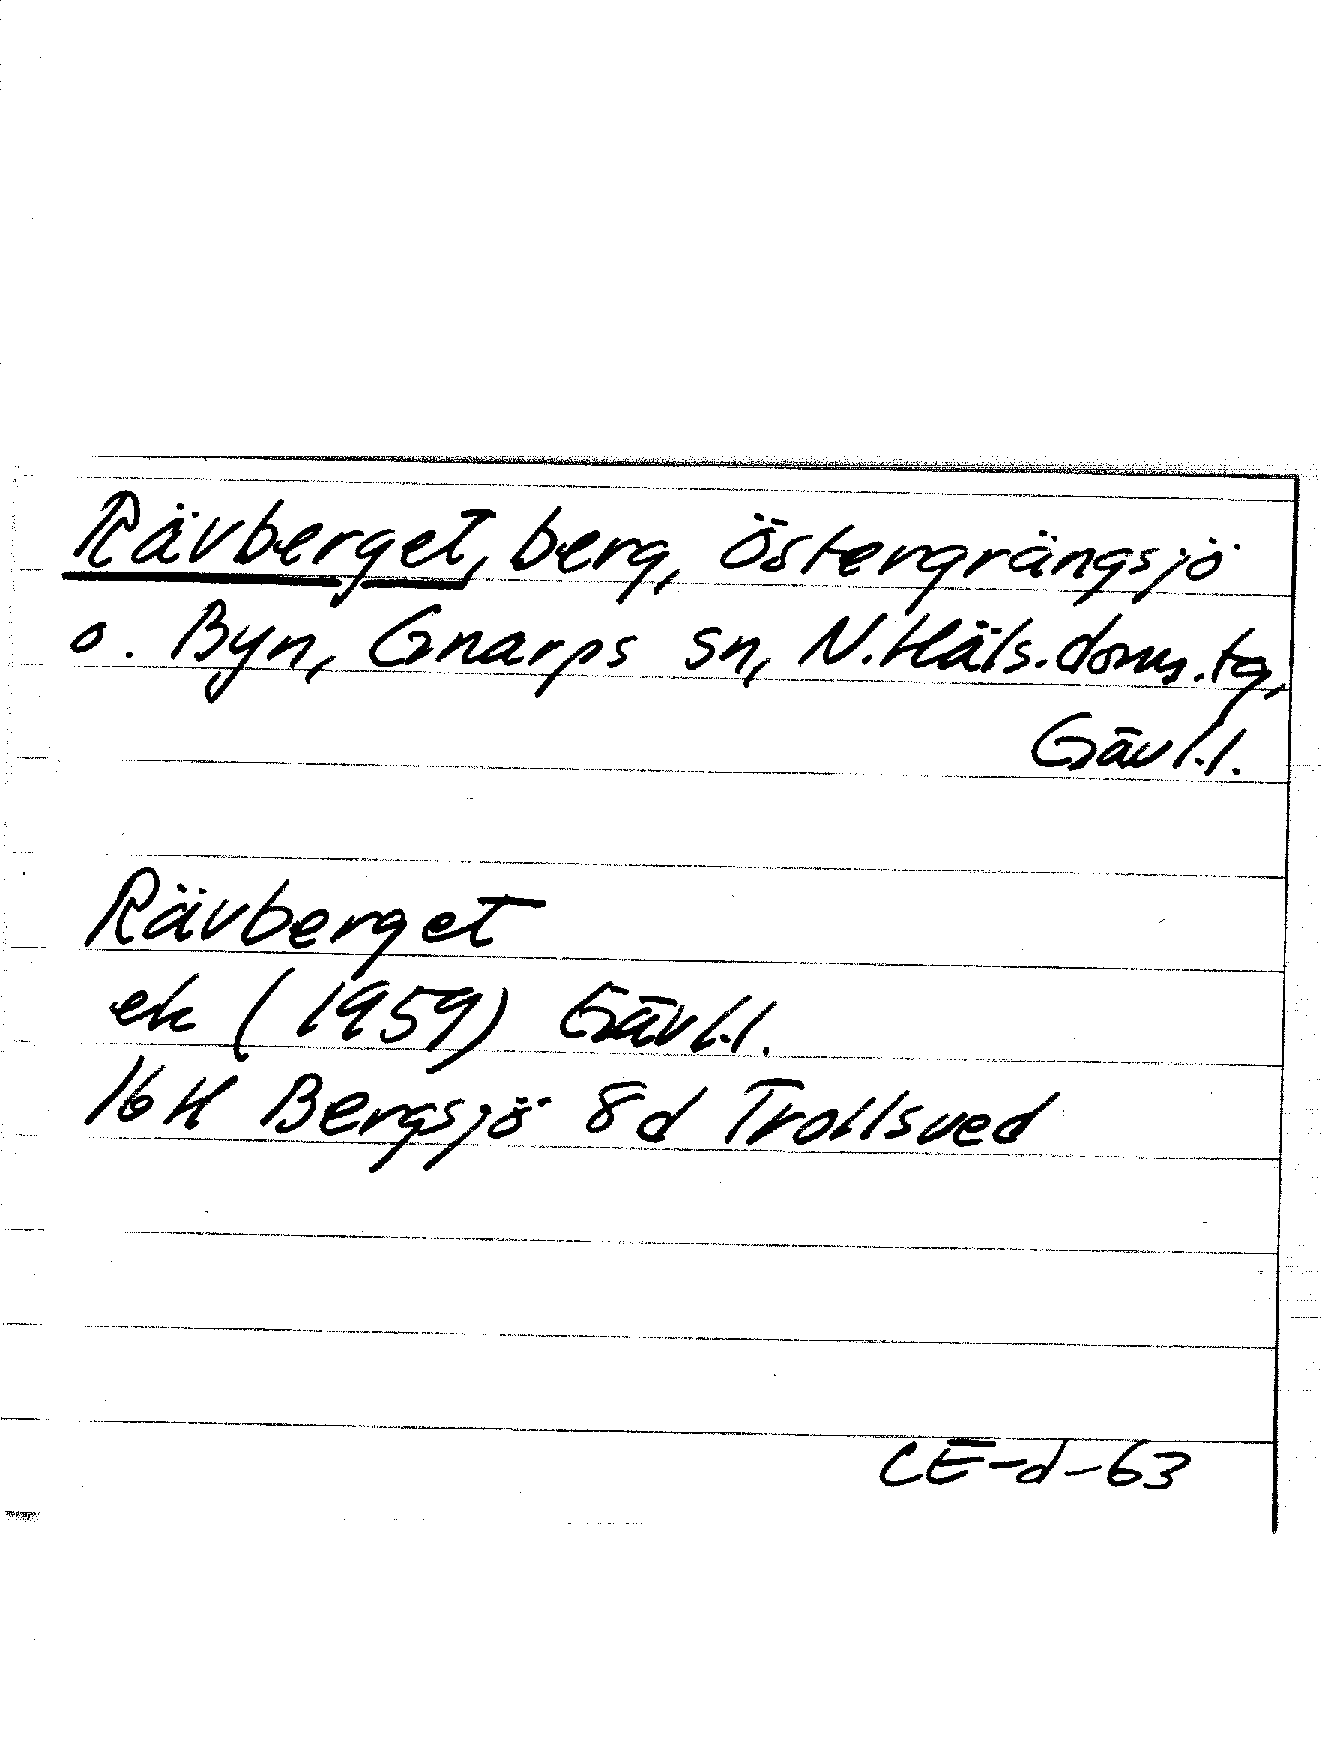 Rävberget, berg, Östergrängsjö
o. Byn, Gnarps sn, N.Häls.doms.tg,
Gävl.l.
Rävberget
ek (1959) Gävl.l.
16H Bergsjö 8d Trollsved
CE-d-63